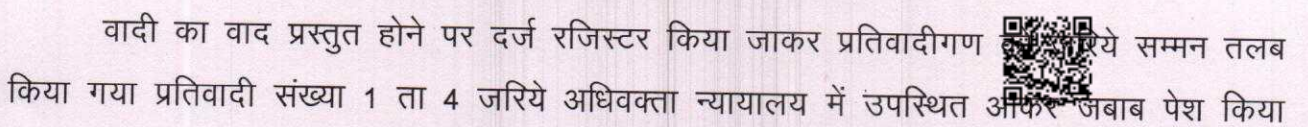 वादी का वाद प्रस्तुत होने पर दर्ज रजिस्टर किया जाकर प्रतिवादीगण जरिये सम्मन तलब
किया गया प्रतिवादी संख्या 1 ता 4 जरिये अधिवक्ता न्यायालय में उपस्थित आकर जबाब पेश किया